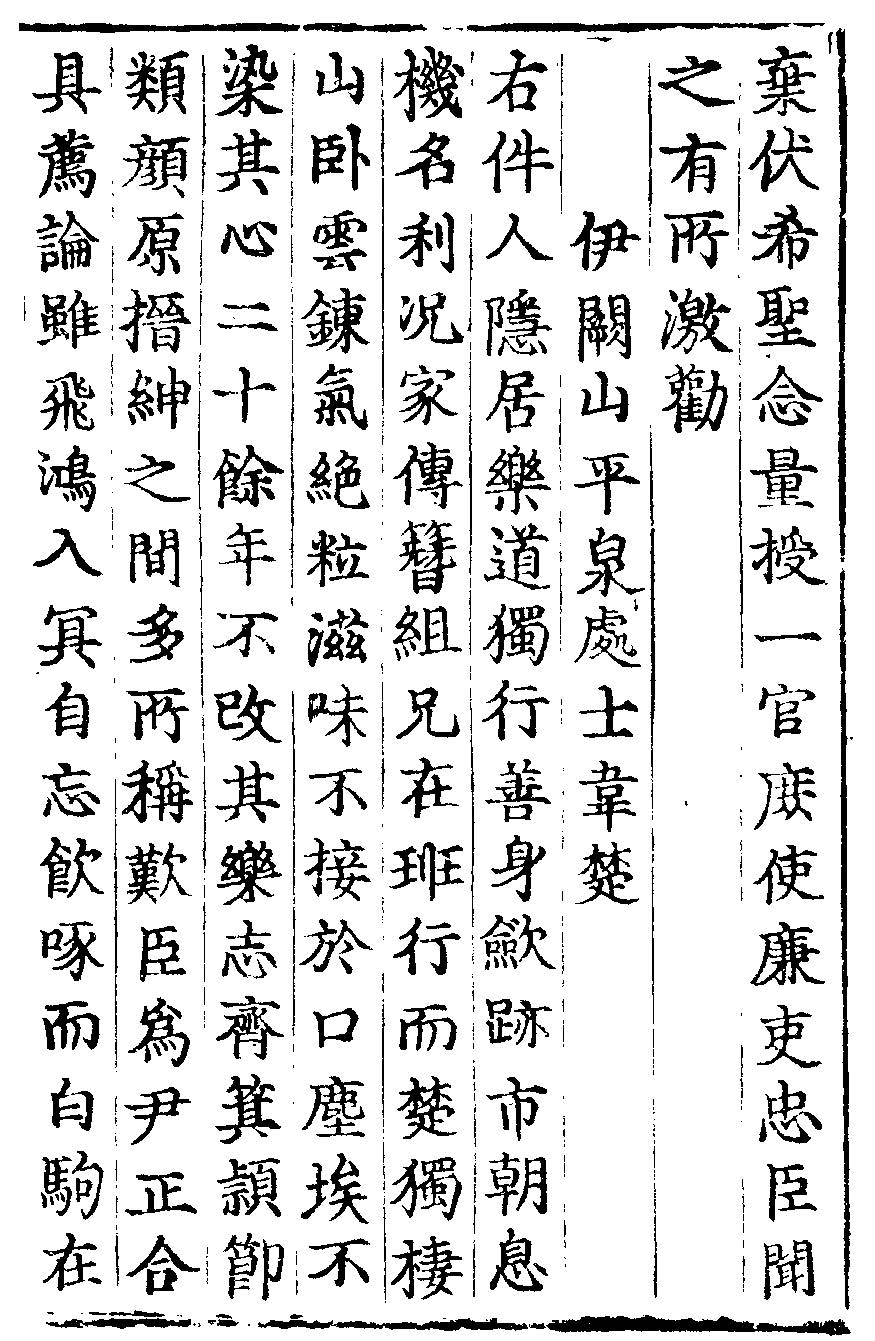 棄伏希聖念量授一官庶使廉吏忠臣聞
之有所激勸
伊闕山平泉處士韋楚
右件人隱居樂道獨行善身歛跡市朝息
機名利况家傳簪組兄在班行而楚獨棲
山卧雲鍊氣絶粒滋味不接於口塵埃不
染其心二十餘年不改其樂志齊箕潁節
類顔原搢紳之間多所稱歎臣爲尹正合
具薦論雖飛鴻入冥自忘飲啄而白駒在